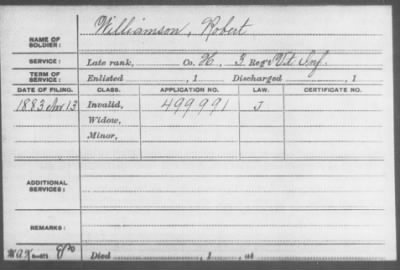 NAME OF SOLDIER: Williamson, Robert
SERVICE: Late rank, Co. H, 3 Reg't Vt. Inf.
TERM OF SERVICE: Enlisted , 1 Discharged , 1
DATE OF FILING. CLASS. APPLICATION NO. LAW. CERTIFICATE NO.
1883 Nov. 13 Invalid, 499991 J
Widow,
Minor,
ADDITIONAL SERVICES:
REMARKS:
Died , 1 , at